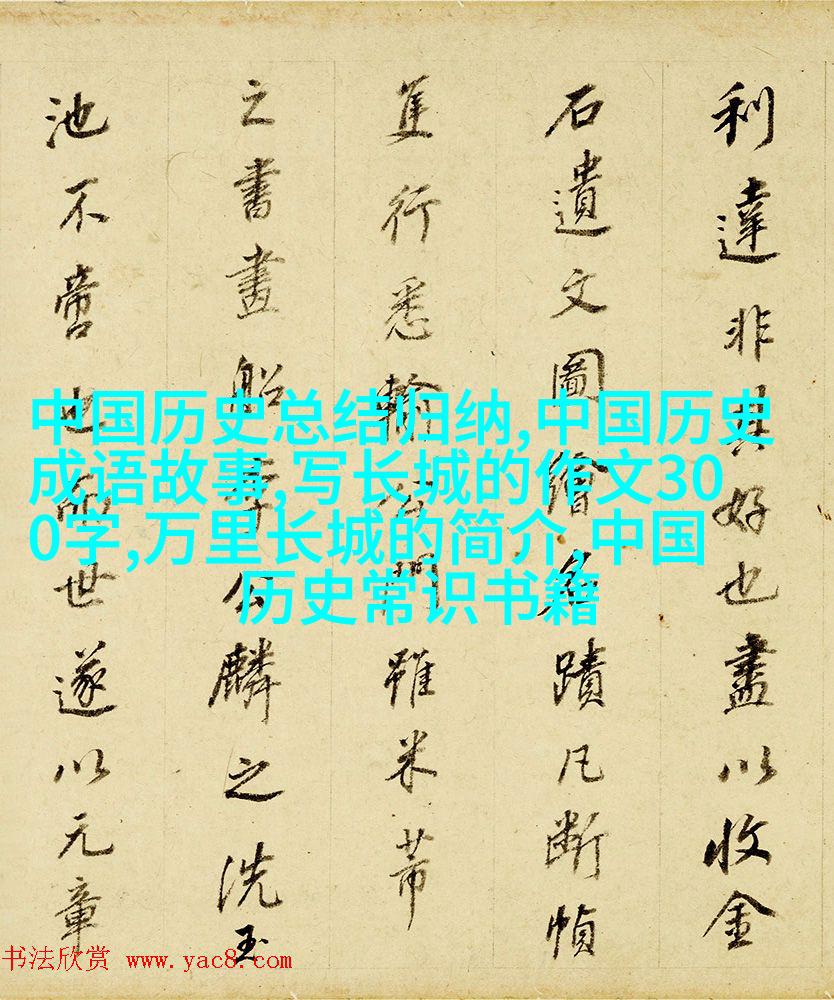 利達非其好也盡以收金
石遺文圖繪名蹟凡斷幀
隻行悉輸公門雖米芾
之書畫船李公麟之洗玉
池不啻也世遂以元章
中国历史总结归纳,中国历史
成语故事,写长城的作文30
0字,万里长城的简介,中国
历史常识书籍
书法欣赏 www.yac8.com